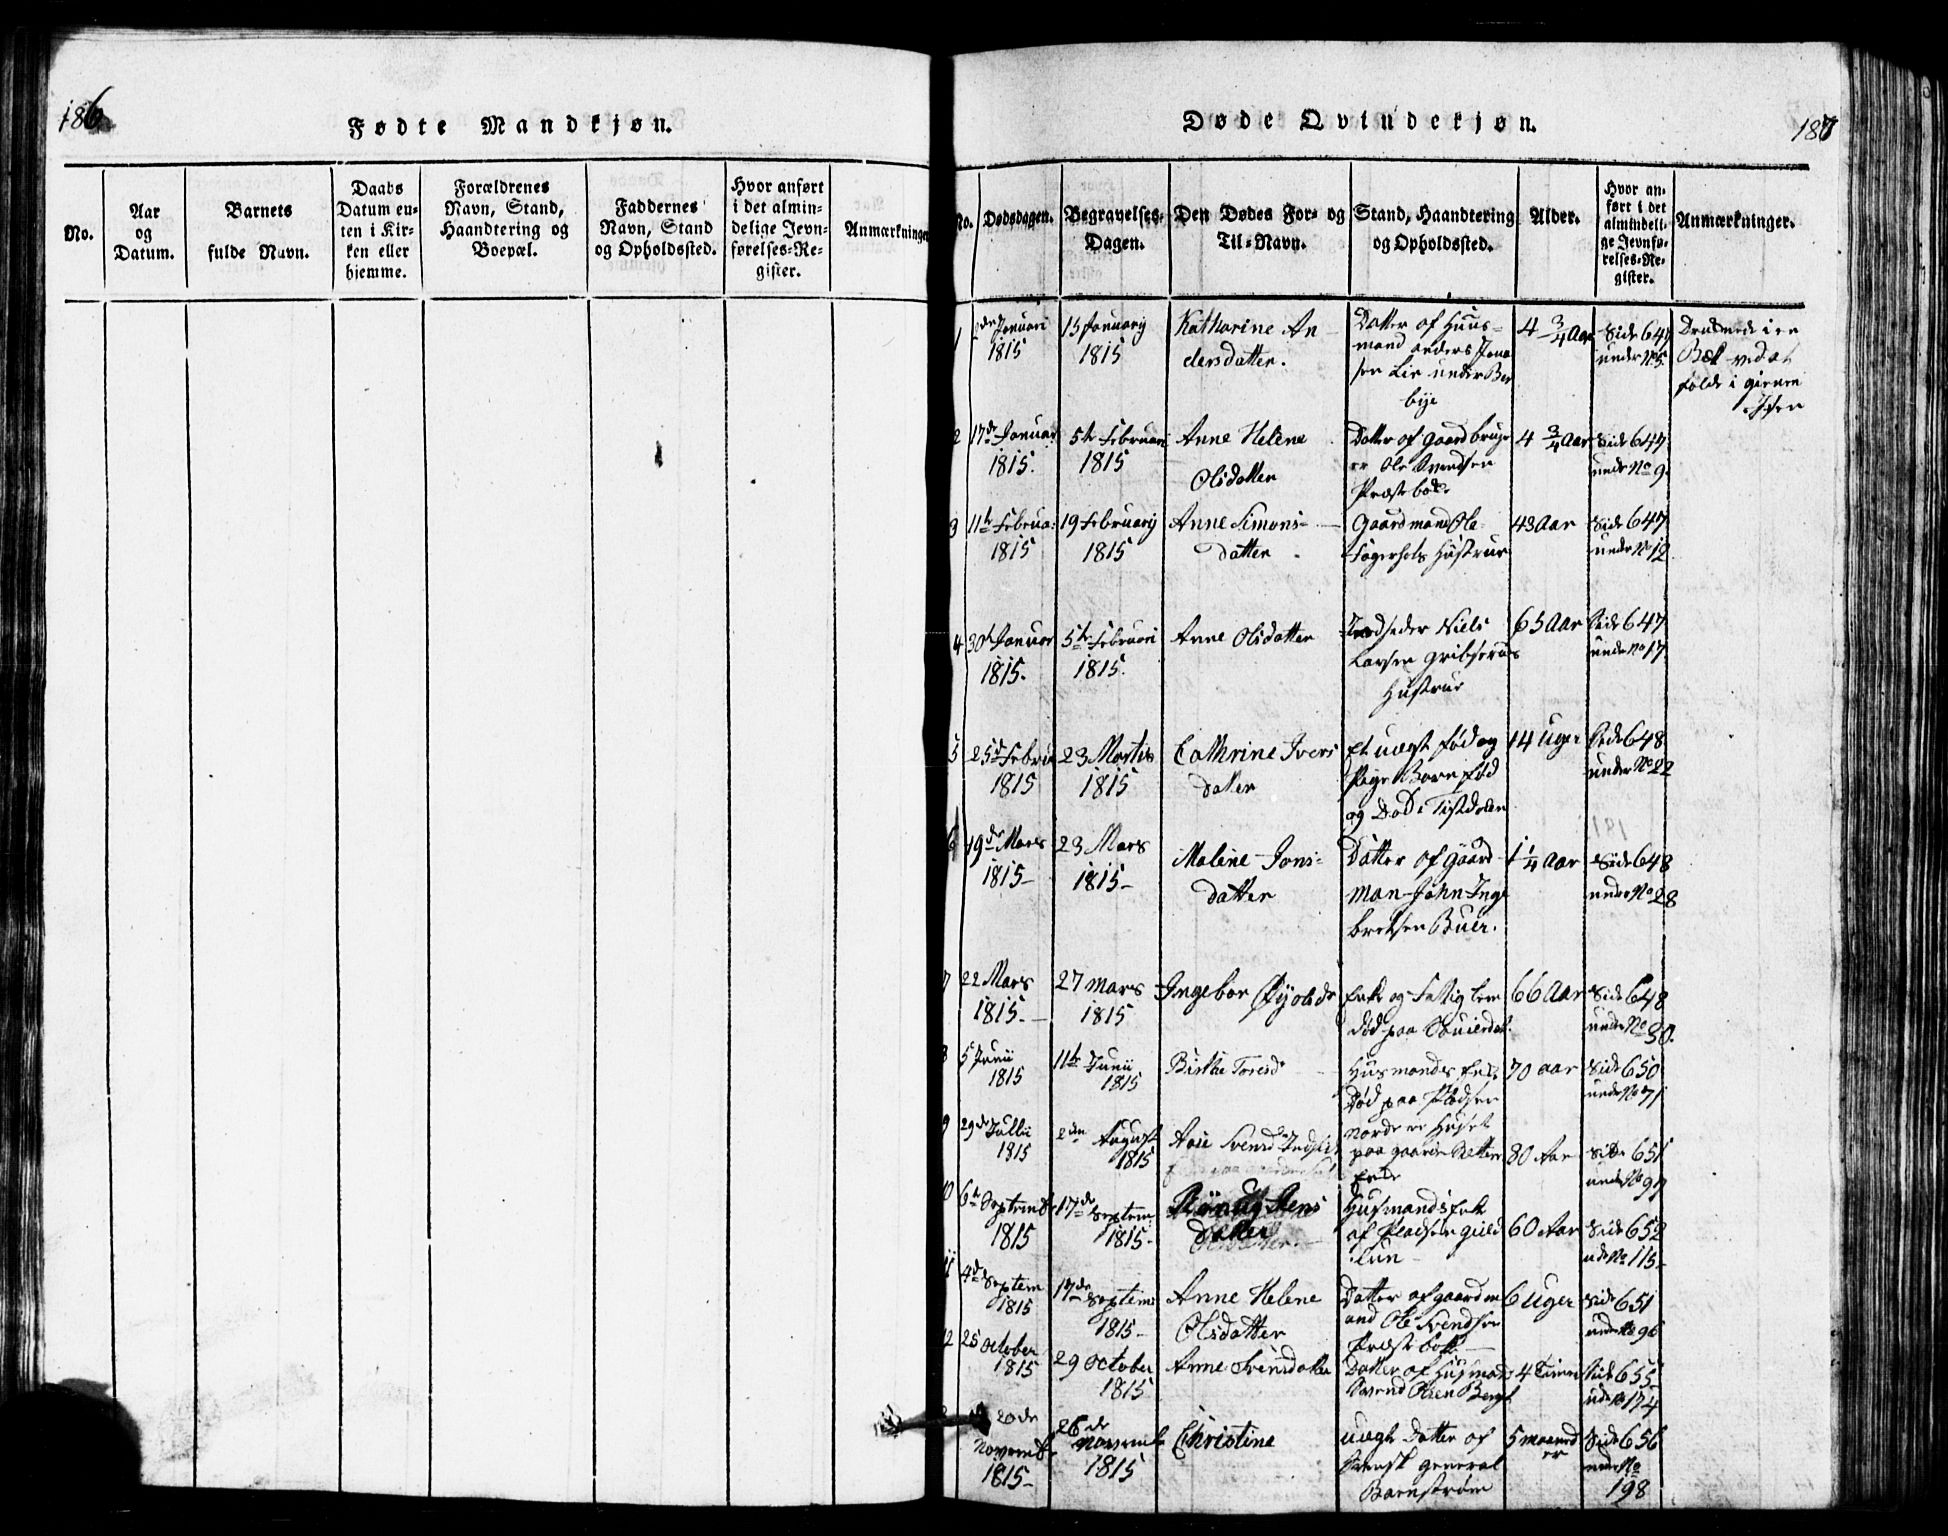 186
Fødte Mandkjøn.
No.
Aar
og
Datum.
Barnets
fulde Navn.
Daabs
Datum en-
ten i Kir-
ken eller
hjemme.
Forældrenes
Navn, Stand,
Haandtering og
Boepæl.
Faddernes
Navn, Stand
og Opholdssted.
Hvor anført
i det almin-
delige Jevn-
førelses-Re-
gister.
Anmærkninger
Døde Qvindekjøn.
187
No.
Dødsdagen.
Begravelses-
Dagen.
Den Dødes For- og
Til-Navn.
Stand, Haandtering
og Opholdssted.
Alder.
Hvor an-
ført i det
almindeli-
ge Jevnfø-
relses-Re-
gister.
Anmærkninger.
1
Januari
1815
15 Januarij
1815
Katharine An
dersdatter.
Datter af Huus-
mand Anders
Lie under Ber
bye
4 3/4 Aar
Side 647
under No 5
i en
Bæk ved at
falde i giennem
Isen
2
17de Januar
1815.
5te Februari
1815
Anne Helene
Olsdatter
Datter af Gaardbruge
er Ole Svendsen
Præstebakke
4 3/4 Aar
Side 647
under No 9.
3
11te Februa:
1815
19 Februarij
1815
Anne Simons-
datter
Gaardmand Ole
Hustrue
43 Aar
Side 647
under No 12
4
30te Januar
1815.
5te Februari
1815.
Anne Olsdatter
Indsider Niels
Larsen
Hustrue
65 Aar
Side 647
under No 17
5
25de Februa
1815
23 Martis
1815
Cathrine Ivers
datter
Et uægte født
Pige Barn fød
og Død i Tistedalen
14 Uger
Side 648
under No 22
6
19de Mars
1815-
23 Mars
1815-
Maline Jons-
datter
Datter af Gaard
man John Inge
bretsen Buer.
1 1/4 Aar
Side 648
under No 28
7
22 Mars
1815-
27 Mars
1815
Ingebor
Enke og Fattig Lem
død paa
66 Aar
Side 648
under No 30.
8
5 Junii
1815
11te Junii
1815
Birthe Toresdr
Husmands Enke
Død paa Pladsen
Nordre
70 Aar
Side 650
under No 71
9
29de Julii
1815
2den August
1815
Svensd
paa gaarden
Enke
80 Aar
Side 651
under No 97
10
6te Septembr
1815
17de Septem
1815-
Stens
datter
Husmands Enke
af Pladsen Guld
60 Aar
Side 652
under No 115-
11
4de Septem
1815
17de Septem:
1815-
Anne Helene
Olsdatter
Datter af gaardm
and Ole Svendsen
Præstebakke
6 Uger
Side 651
under No 96
12
25 October
1815
29 October
1815
Anne Svensdatter
Datter af Husmand
Svend Olsen Berg
4 Timer
Side 655
under No 174
20de
Novembr
1815-
26de
Novembr
1815
Christine
uægte Datter af
Svensk General
Barnstrøm
5 maaned
er
Side 656
under No
198